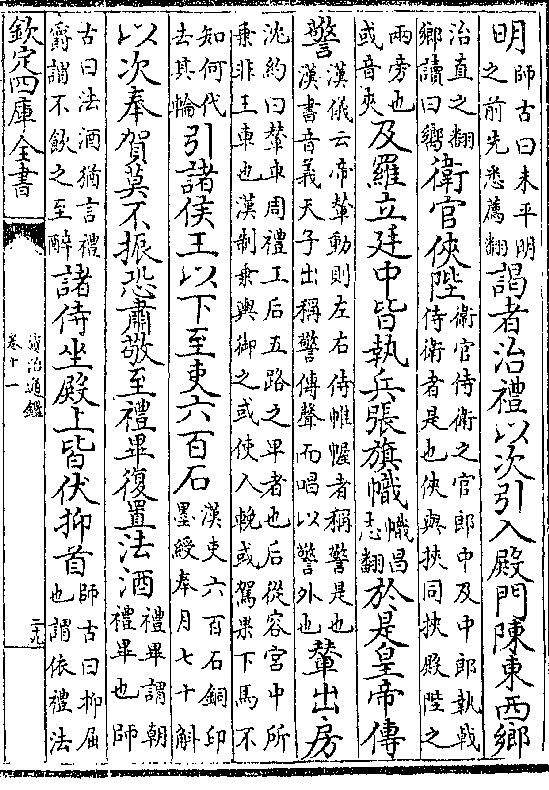 明師古曰未平明之前先悉薦翻謁者治禮以次引入殿門陳東西鄉
治直之翻鄉讀曰嚮衛官俠陛衛官侍衛之官郎中及中郎執戟侍衛者是也俠與挾同挾殿陛之
兩旁也或音夾及羅立廷中皆執兵張旗幟幟昌志翻於是皇帝傳
警漢儀云帝輦動則左右侍帷幄者稱警是也漢書音義天子出稱警傳聲而唱以警外也輦出房
沈約曰輦車周禮王后五路之卑者也后從容宮中所乗非王車也漢制乗輿御之或使人輓或駕果下馬不
知何代去其輪引諸侯王以下至吏六百石漢吏六百石銅印墨綬奉月七十斛
以次奉賀莫不振恐肅敬至禮畢復置法酒禮畢謂朝禮畢也師
古曰法酒猶言禮爵謂不飲之至醉諸侍坐殿上皆伏抑首師古曰抑屈也謂依禮法
欽定四庫全書
資治通鑑
卷十一
二九